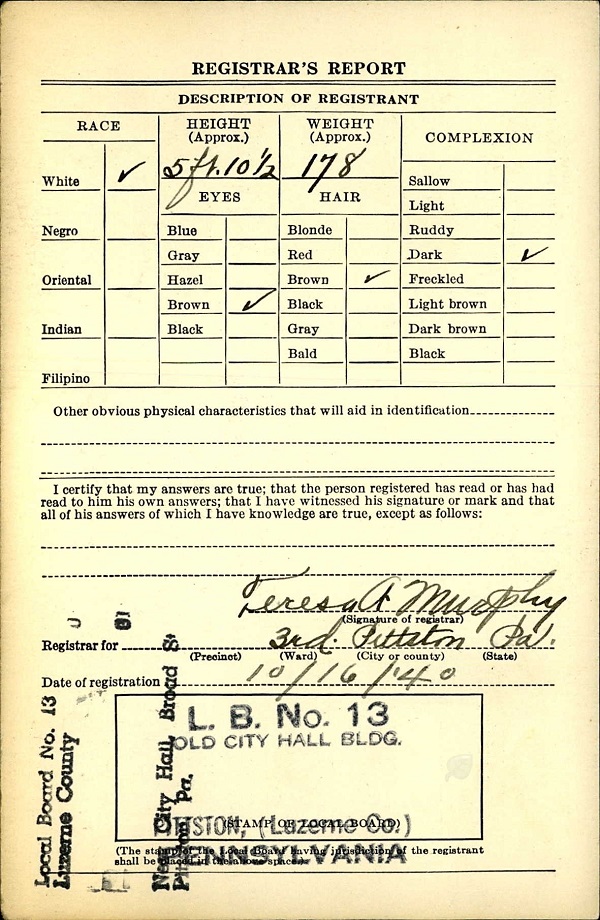 REGISTRAR'S REPORT
DESCRIPTION OF REGISTRANT
RACE
HEIGHT (Approx.)
WEIGHT (Approx.)
COMPLEXION
5 ft. 10 1/2
178
White ✓
Negro
Oriental
Indian
Filipino
EYES
Blue
Gray
Hazel
Brown ✓
Black
HAIR
Blonde
Red
Brown ✓
Black
Gray
Bald
Sallow
Light
Ruddy
Dark ✓
Freckled
Light brown
Dark brown
Black
Other obvious physical characteristics that will aid in identification
I certify that my answers are true; that the person registered has read or has had
read to him his own answers; that I have witnessed his signature or mark and that
all of his answers of which I have knowledge are true, except as follows:
Teresa A Murphy
(Signature of registrar)
Registrar for 3rd. Pittston Pa.
(Precinct) (Ward) (City or county) (State)
Date of registration 10/16/40
L. B. No. 13
OLD CITY HALL BLDG.
(STAMP OF LOCAL BOARD)
PITTSTON, (Luzerne Co.)
PENNSYLVANIA
(The stamp of the Local Board having jurisdiction of the registrant
shall be placed in the above space.)
Local Board No. 13
Luzerne County
New City Hall, Broad St
Pittston Pa.